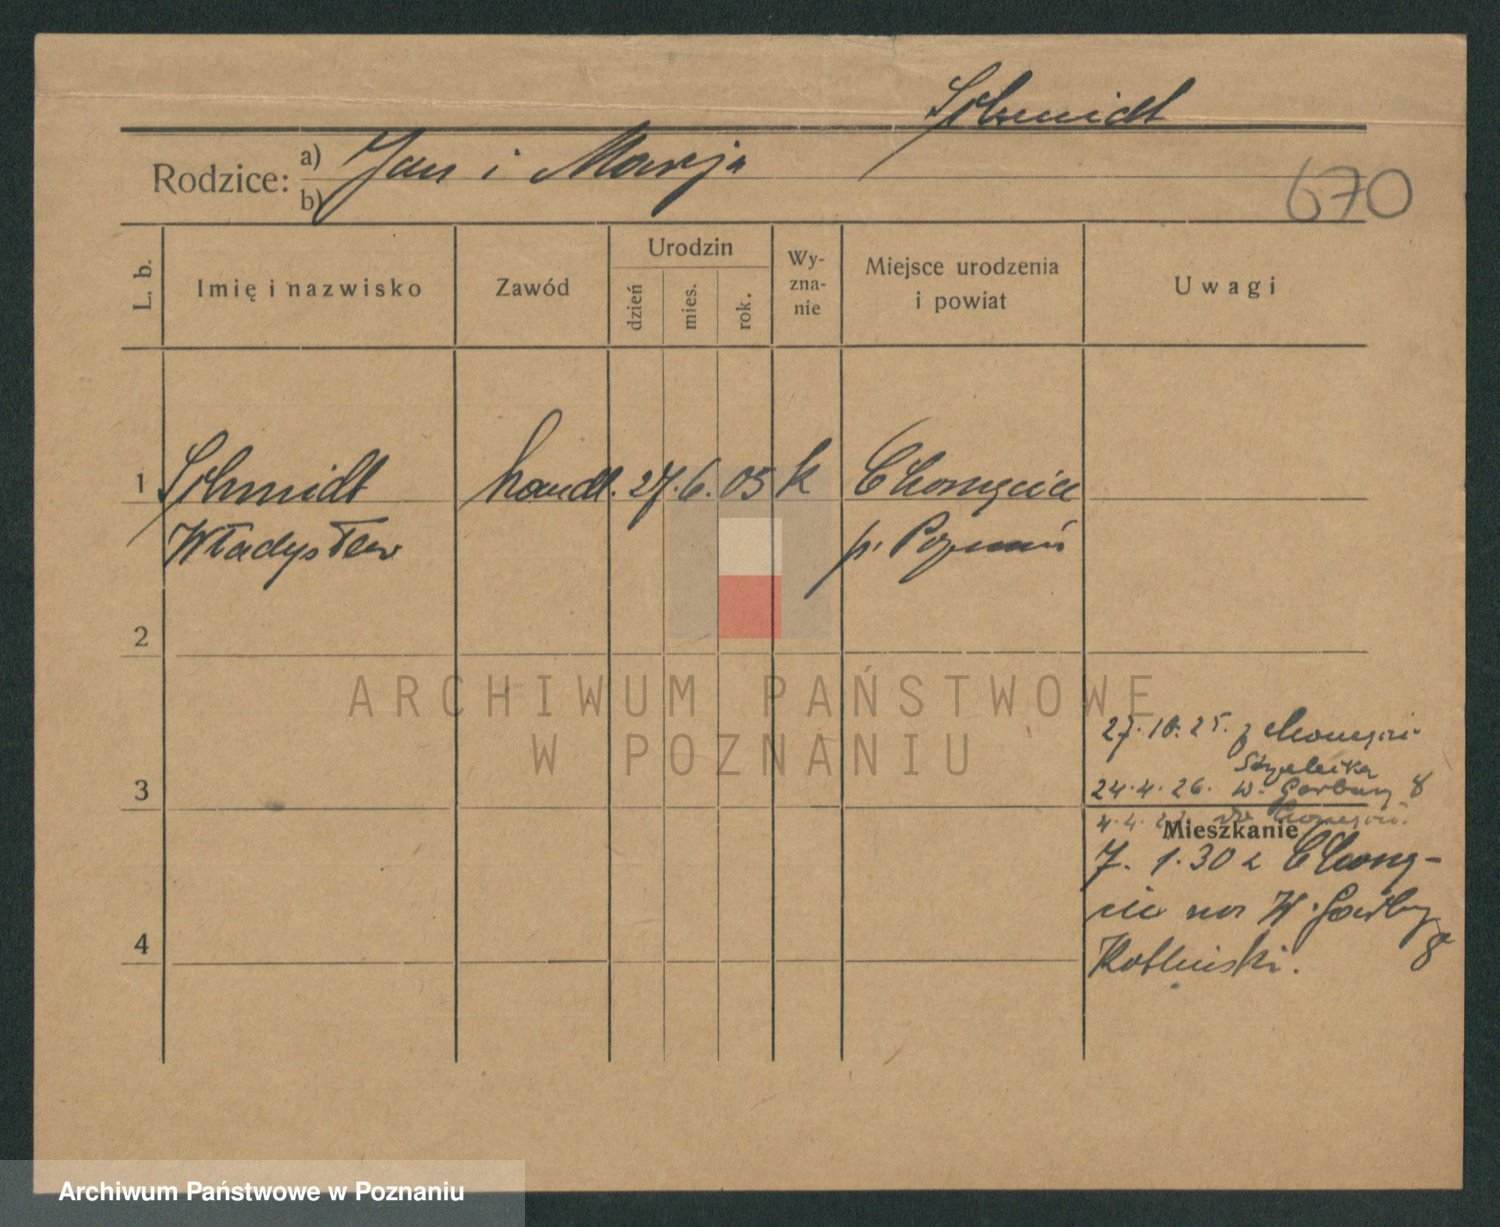 Schmidt
Rodzice: a) Jan i Marja
b)
670
L. b.
Imię i nazwisko
Zawód
Urodzin
dzień
mies.
rok.
Wy-
zna-
nie
Miejsce urodzenia
i powiat
Uwagi
1 Schmidt handl. 27. 6. 05 k Chomęcice
Władysław p. Poznań
2
ARCHIWUM PAŃSTWOWE
W POZNANIU
27.10.25. z Chomęcic
Strzelecka
3
24.4.26. W. Garbary 8
4.4. do Chomęcic
Mieszkanie
7. 1. 30 z Chomę-
cic na W. Garbary
8
4
Archiwum Państwowe w Poznaniu